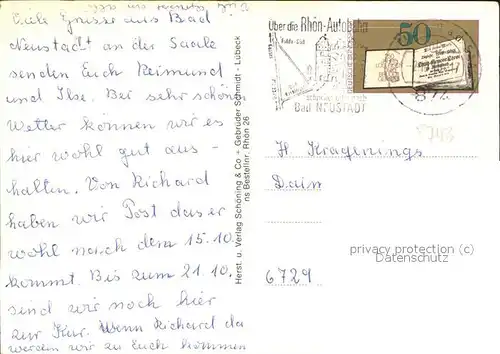 Viele Grüsse aus Bad
Neustadt an der Saale
senden Euch Reimund
und Ilse. Bei sehr schön
Wetter können wir es
hier wohl gut aus-
halten. Von Richard
haben wir Post das er
wohl nach dem 15.10.
kommt. Bis zum 21.10.
sind wir noch hier
zur Kur. Wenn Richard da
werden wir zu Euch kommen
Herst. u. Verlag Schöning & Co + Gebrüder Schmidt - Lübeck
ns Bestellnr. Rhön 26
Über die Rhön-Autobahn
Bad NEUSTADT
50
874
H. Kragenings
Dain
6729
privacy protection (c)
Datenschutz